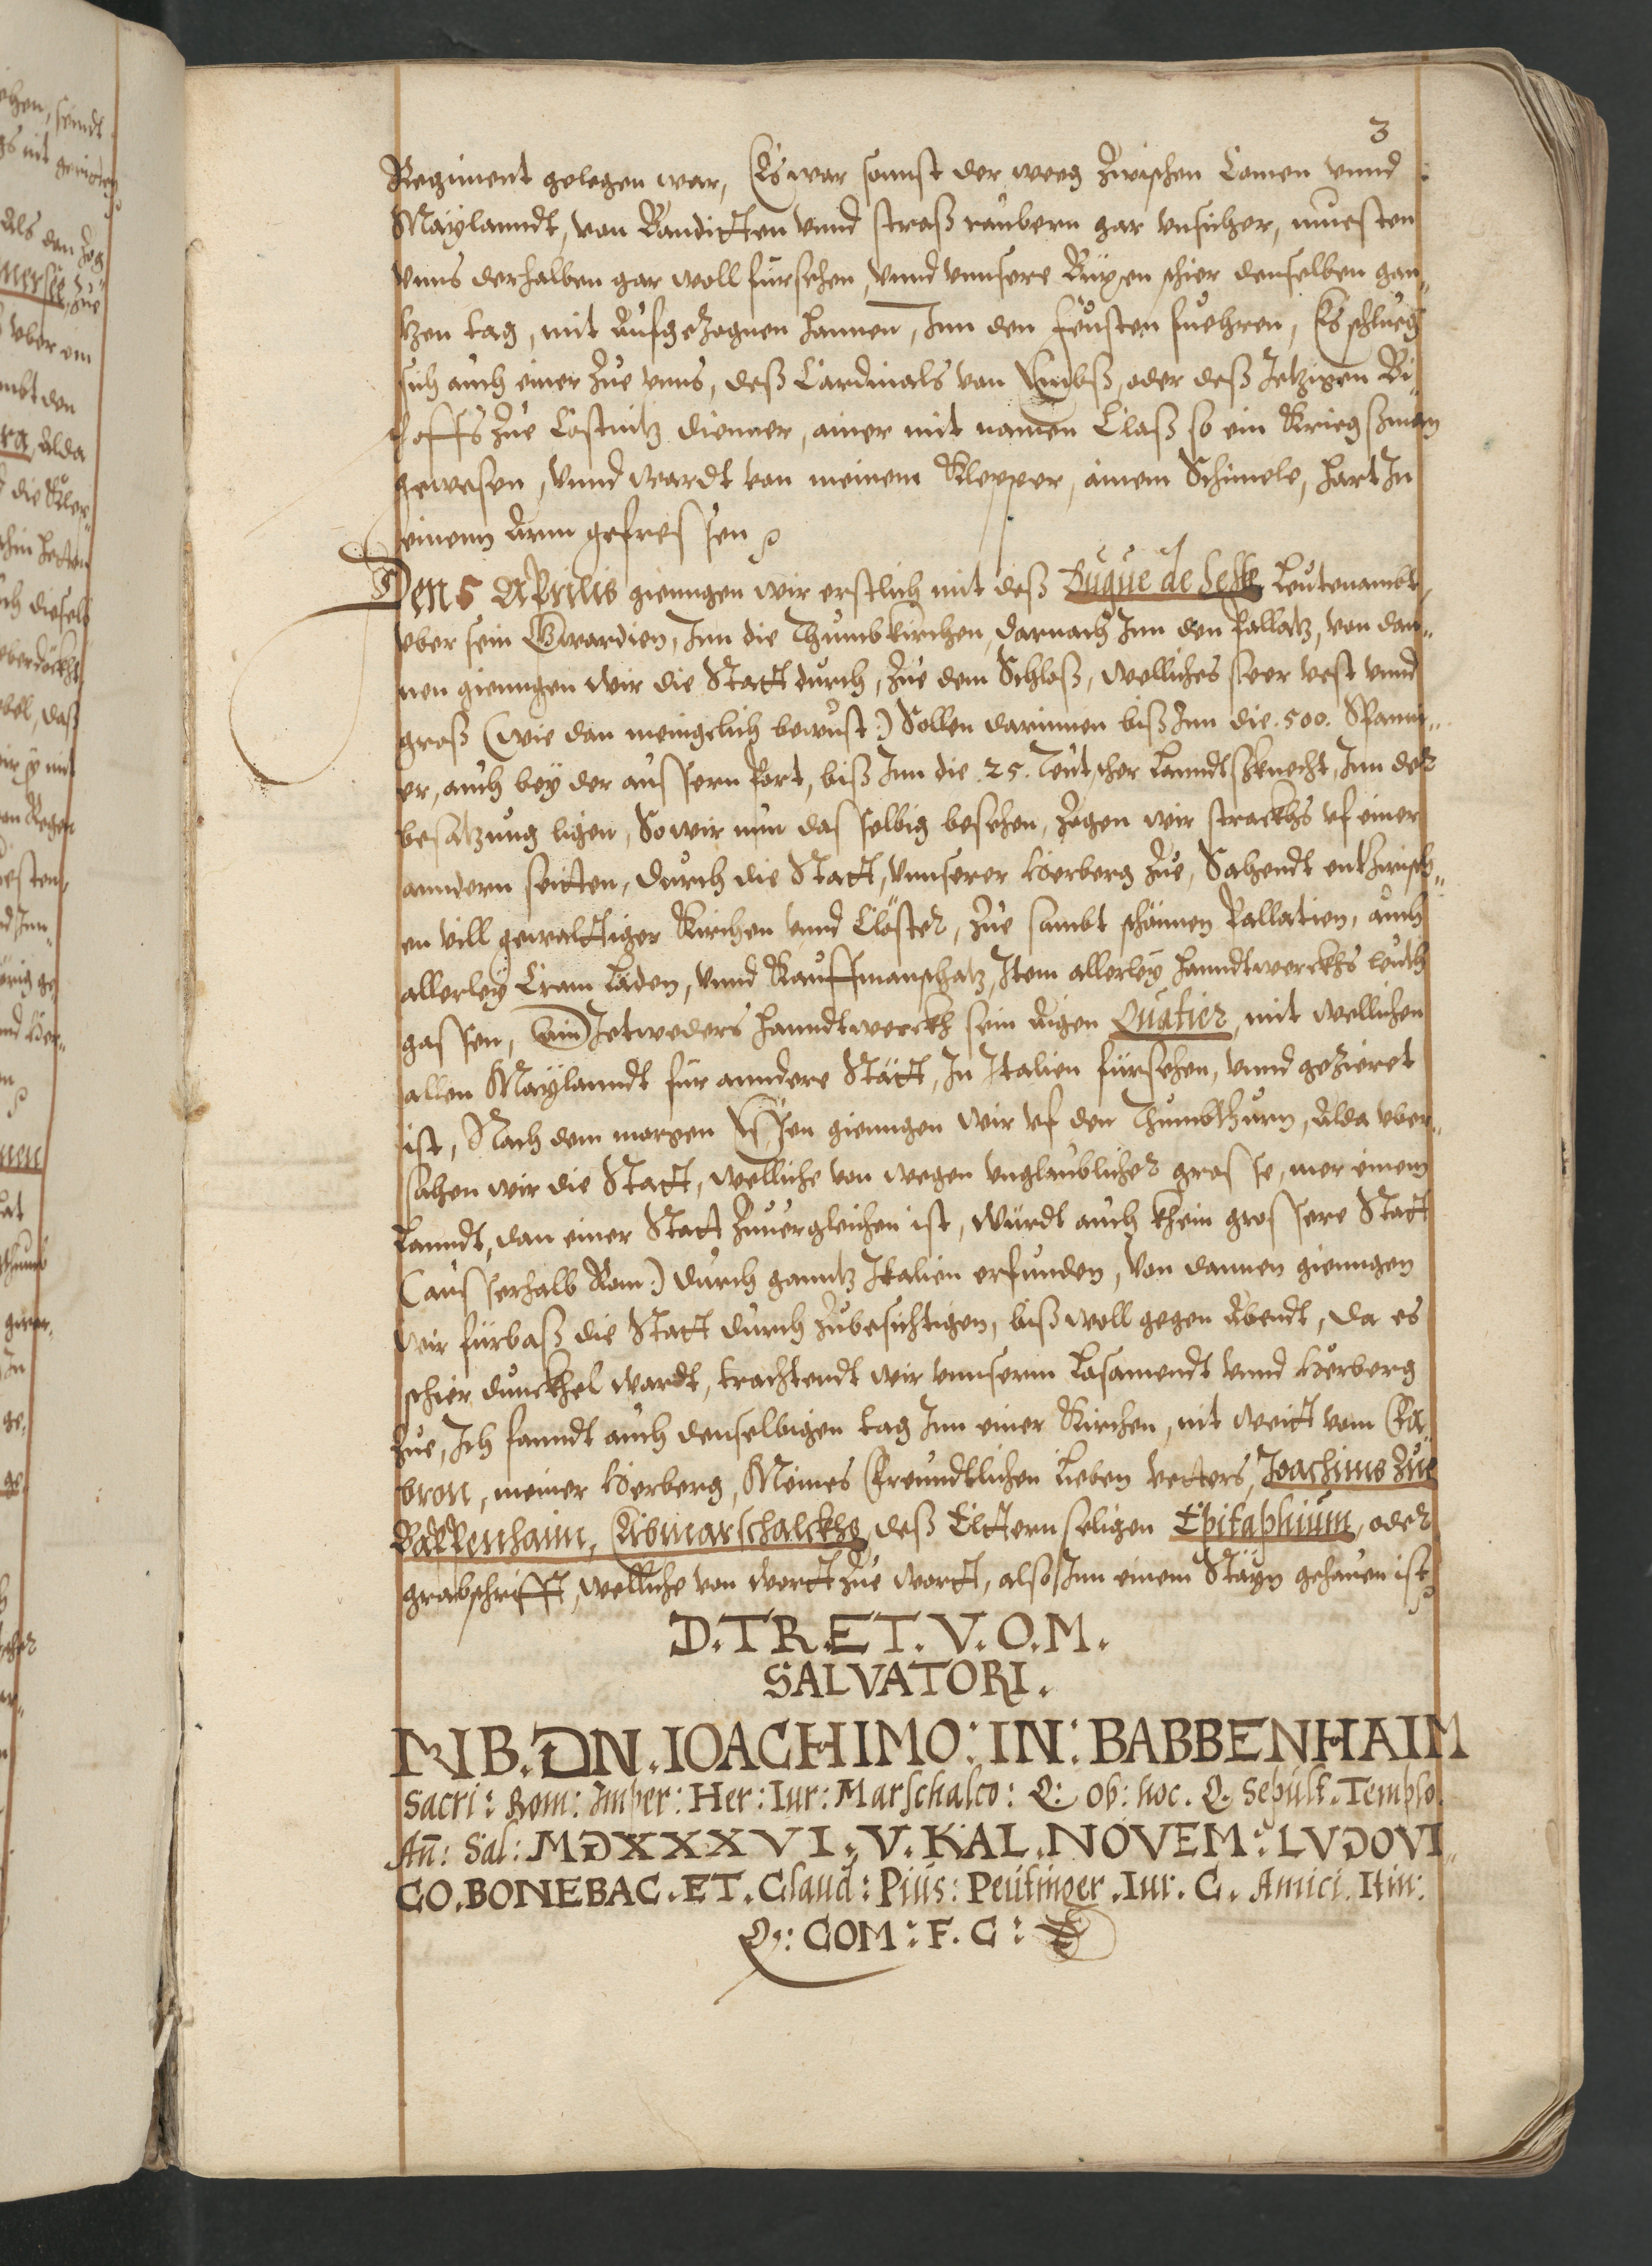 3
Regiment gelegen war, Es war sonnst der weeg zwischen Comen vnnd
Maylanndt, von Banditten vnnd straß raubern gar vnsicher, muesten
vnns derhalben gar woll fürsehen, vnnd vnnsere Büxen schier denselben gan„
tzen tag, mit aufgezognen hannen, Inn den feusten fuehren, Es schlueg
sich auch einer zue vnns, deß Cardinals von Embß, oder deß Jetzigen Bi„
schoffs zue Costnitz dienner, ainer mit namen Claß so ein Kriegßman
gewesen, vnnd wardt von meinem Klepper, ainem Schimele, hart In
einenn Arm gefressen
Den 5 Aprilis giengen wir erstlich mit deß Duque de Sesse Leutenambt,
vber sein Gwardien, Inn die Thumbkirchen, darnach Inn den Pallatz, von dan„
nen giengen wir die Statt durch, zue dem Schloß, welliches seer vest vnnd
groß (wie dan menigelich bewust:) Sollen darinnen biß Inn die .500. Spanni„
er, auch bey der aussern Port, biß Inn die .25. Teutscher Lanndtsknecht, Inn der
besatzung ligen, So wir nun dasselbig besehen, zogen wir strackhs vf einer
anndern seitten, durch die Statt, vnnserer Herberg zue, Sahendt entzwisch„
en vill gewalttiger Kirchen vnnd Clöster, zue sambt schönnen Pallatien, auch
allerley Cram Läden, vnnd Kauffmanschatz, Item allerley hanndtwerckhs leuth
gassen, Ain Jetweders hanndtwerckh sein aigen Quatier, mit wellichen
allen Maylanndt für anndere Stätt, In Italien fürsehen, vnnd gezieret
ist, Nach dem morgen Essen giengen wir vf den Thumbthurn, Alda vber„
sahen wir die Statt, welliche von wegen vnglaublicher grosse, mer einem
Lanndt, dan einer Statt zuuergleichen ist, würdt auch khein grossere Statt
(ausserhalb Rom:) durch ganntz Italien erfunden, Von dannen giengen
wir fürbaß die Statt durch zubesichtigen, biß woll gegen Abendt, da es
schier dunckhel wardt, trachtendt wir vnnserm Losamendt vnnd Herberg
zue, Ich fanndt auch denselbigen tag Inn einer Kirchen, nit weitt vom Fa
bron, meiner Herberg, Meines Freundtlichen Lieben Vetters, Joachims zue
Bappenhaim, Erbmarschalckhs, deß Elttern seligen Epitaphium, oder
grabschrifft, welliche von wortt zue wortt, also Inn einem Stayn gehauen ist
D.TR.ET.V.O.M.
SALVATORI.
NIB.DN.IOACHIMO:IN:BABBENHAIM
Sacri: Rom: Imper: Her: Iur: Marschalco: Q: Ob: hoc. Q. Sepult. Templo.
An̄: Sal: MDXXXVI.V.KAL.NOVEM: LVDOVI„
CO.BONEBAC.ET.Claud: Pius: Peutinger.Iur.C. Amici. Itin:
Q: COM: F.C: